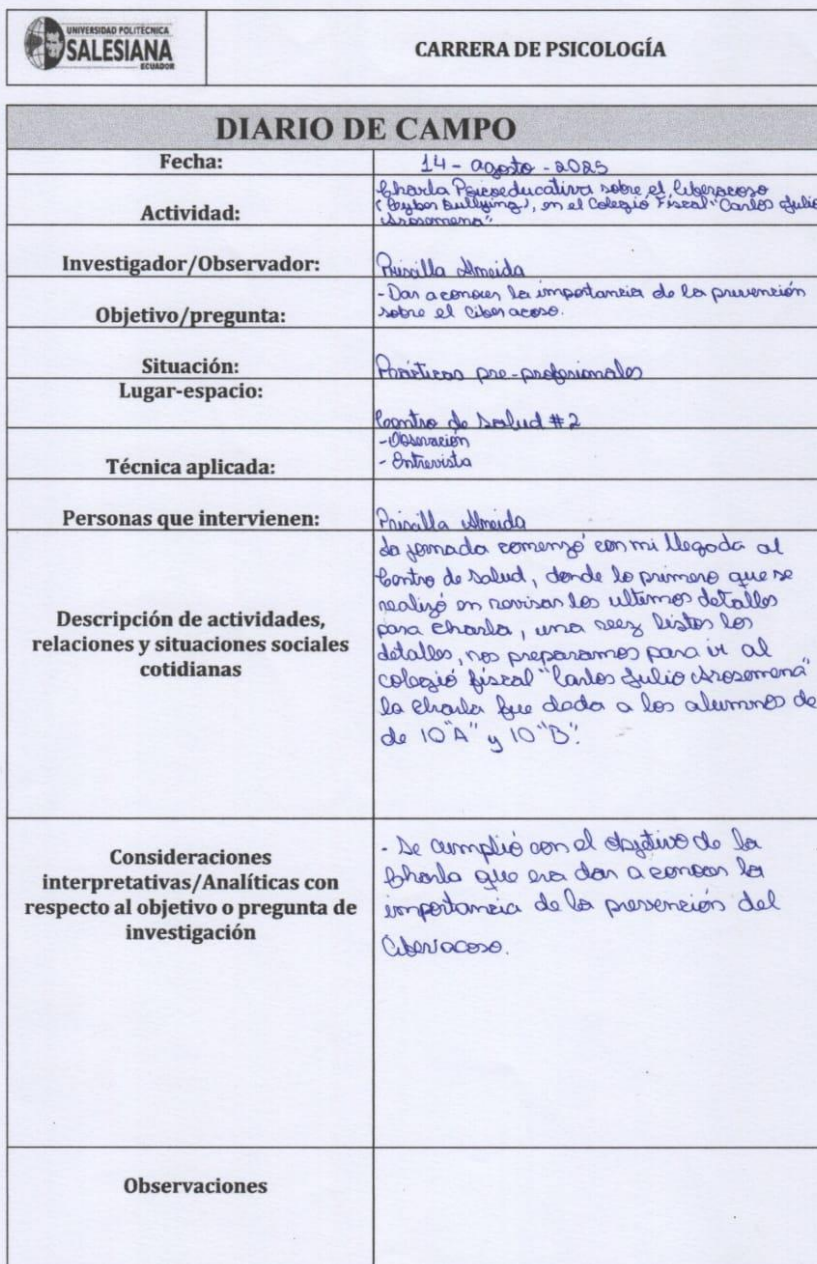 UNIVERSIDAD POLITÉCNICA
SALESIANA
ECUADOR
CARRERA DE PSICOLOGÍA
DIARIO DE CAMPO
Fecha:
14 - agosto - 2025
Actividad:
Charla Psicoeducativa sobre el Ciberacoso
(Cyber bullying), en el Colegio Fiscal "Carlos Julio
Arosemena".
Investigador/Observador:
Priscilla Almeida
Objetivo/pregunta:
- Dar a conocer la importancia de la prevención
sobre el Ciber acoso.
Situación:
Prácticas pre-profesionales
Lugar-espacio:
Centro de Salud #2
Técnica aplicada:
- Observación
- Entrevista
Personas que intervienen:
Priscilla Almeida
Descripción de actividades,
relaciones y situaciones sociales
cotidianas
La jornada comenzó con mi llegada al
Centro de Salud, donde lo primero que se
realizó en revisar los ultimos detalles
para charla, una vez listos los
detalles, nos preparamos para ir al
colegio fiscal "Carlos Julio Arosemena"
la charla fue dada a los alumnos de
de 10 "A" y 10 "B".
Consideraciones
interpretativas/Analíticas con
respecto al objetivo o pregunta de
investigación
- Se cumplió con el objetivo de la
Charla que era dar a conocer la
importancia de la prevención del
Ciberacoso.
Observaciones